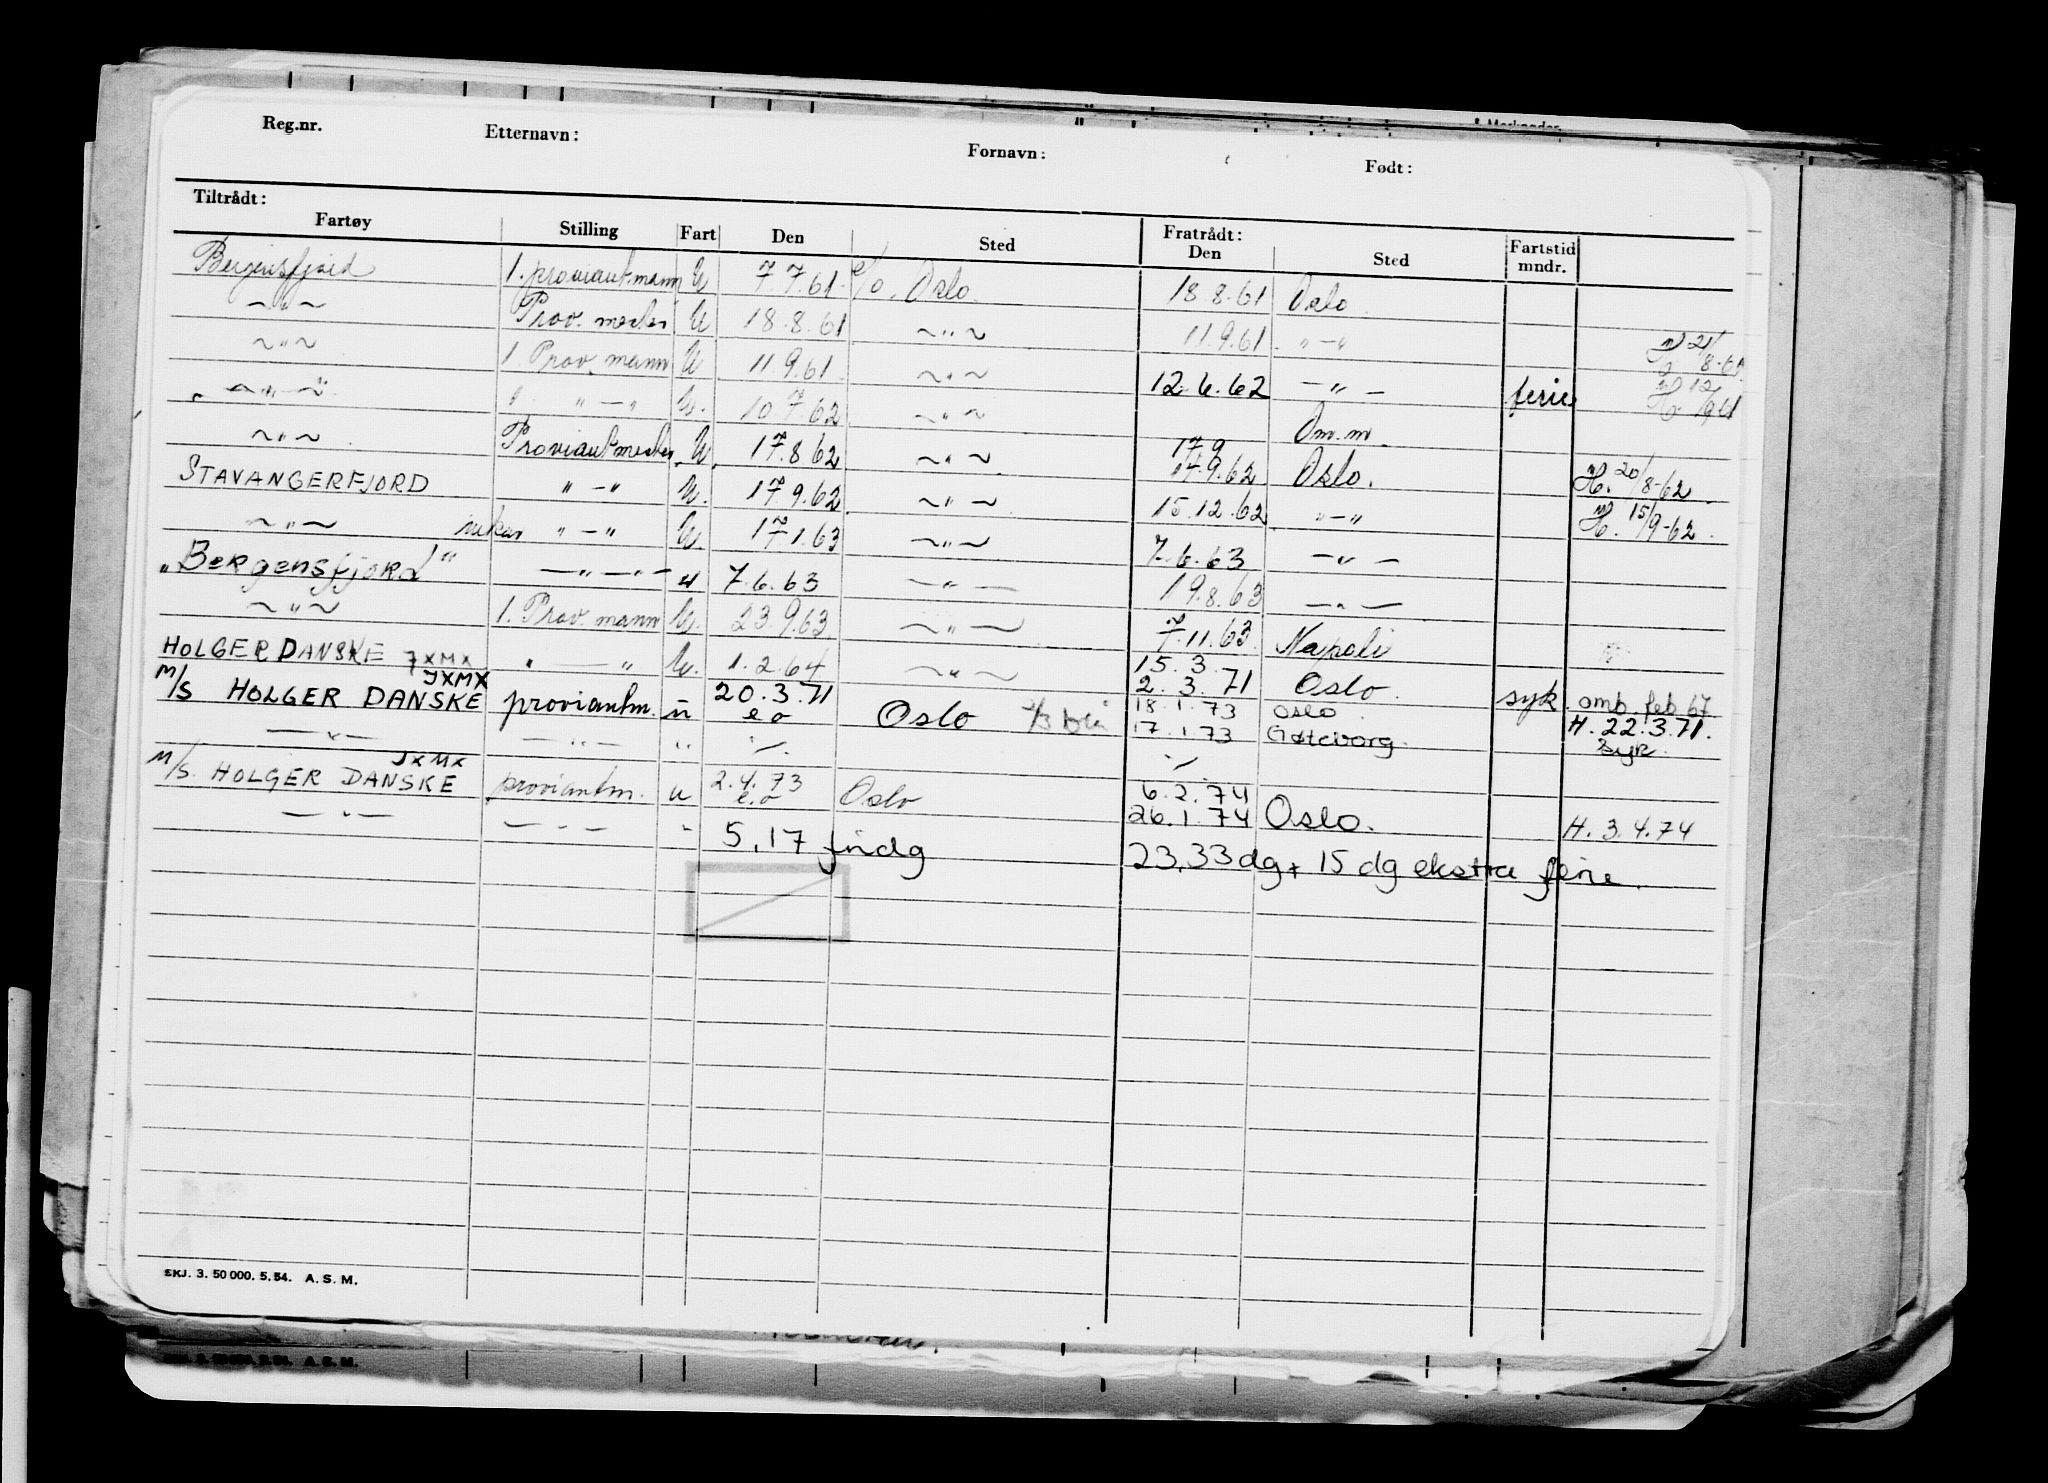 Merknader
Reg.nr. Etternavn: Fornavn: Født:
Tiltrådt: Fratrådt:
Fartøy Stilling Fart Den Sted Den Sted Fartstid mndr.
Bergensfjord 1. proviantmann U 7.7.61 e/o. Oslo. 18.8.61 Oslo.
~"~ Prov. mester U 18.8.61 ~"~ 11.9.61 "-" 21/8-61
~"~ 1. Prov. mann U 11.9.61 ~"~ 12.6.62 -"- ferie H. 12/9-61
~"~ " " - " U. 10.7.62 ~"~ Om.m.
~"~ Proviantmester U. 17.8.62 ~"~ 17.9 14.9.62 Oslo. H. 20/8-62
STAVANGERFJORD "-" U. 17.9.62 ~"~ 15.12.62 "-" H. 15/9-62.
~"~ "-" U. 17.1.63 ~"~ 7.6.63 -"-
"Bergensfjord" -"- u 7.6.63 -"- 19.8.63 -"-
~"~ 1. Prov. mann U. 23.9.63 ~"~ 7.11.63 Napoli
HOLGER DANSKE JXMX " - " U. 1.2.64 ~"~ 15.3. 2.3.71 Oslo. syk omb. feb 67
M/S HOLGER DANSKE JXMX proviantm. u 20.3.71 e o Oslo 18.1.73 Oslo H. 22.3.71.
-"- -"- " -/- 17.1.73 Gøteborg. syk.
-/-
M/S. HOLGER DANSKE JXMX proviantm. u 2.4.73 e.o Oslo 6.2.74
-"- -"- " 26.1.74 Oslo. H. 3.4.74
5,17 fridg 23,33dg + 15 dg ekstra ferie.
SKJ. 3. 50 000. 5. 54. A. S. M.
A. S. M.